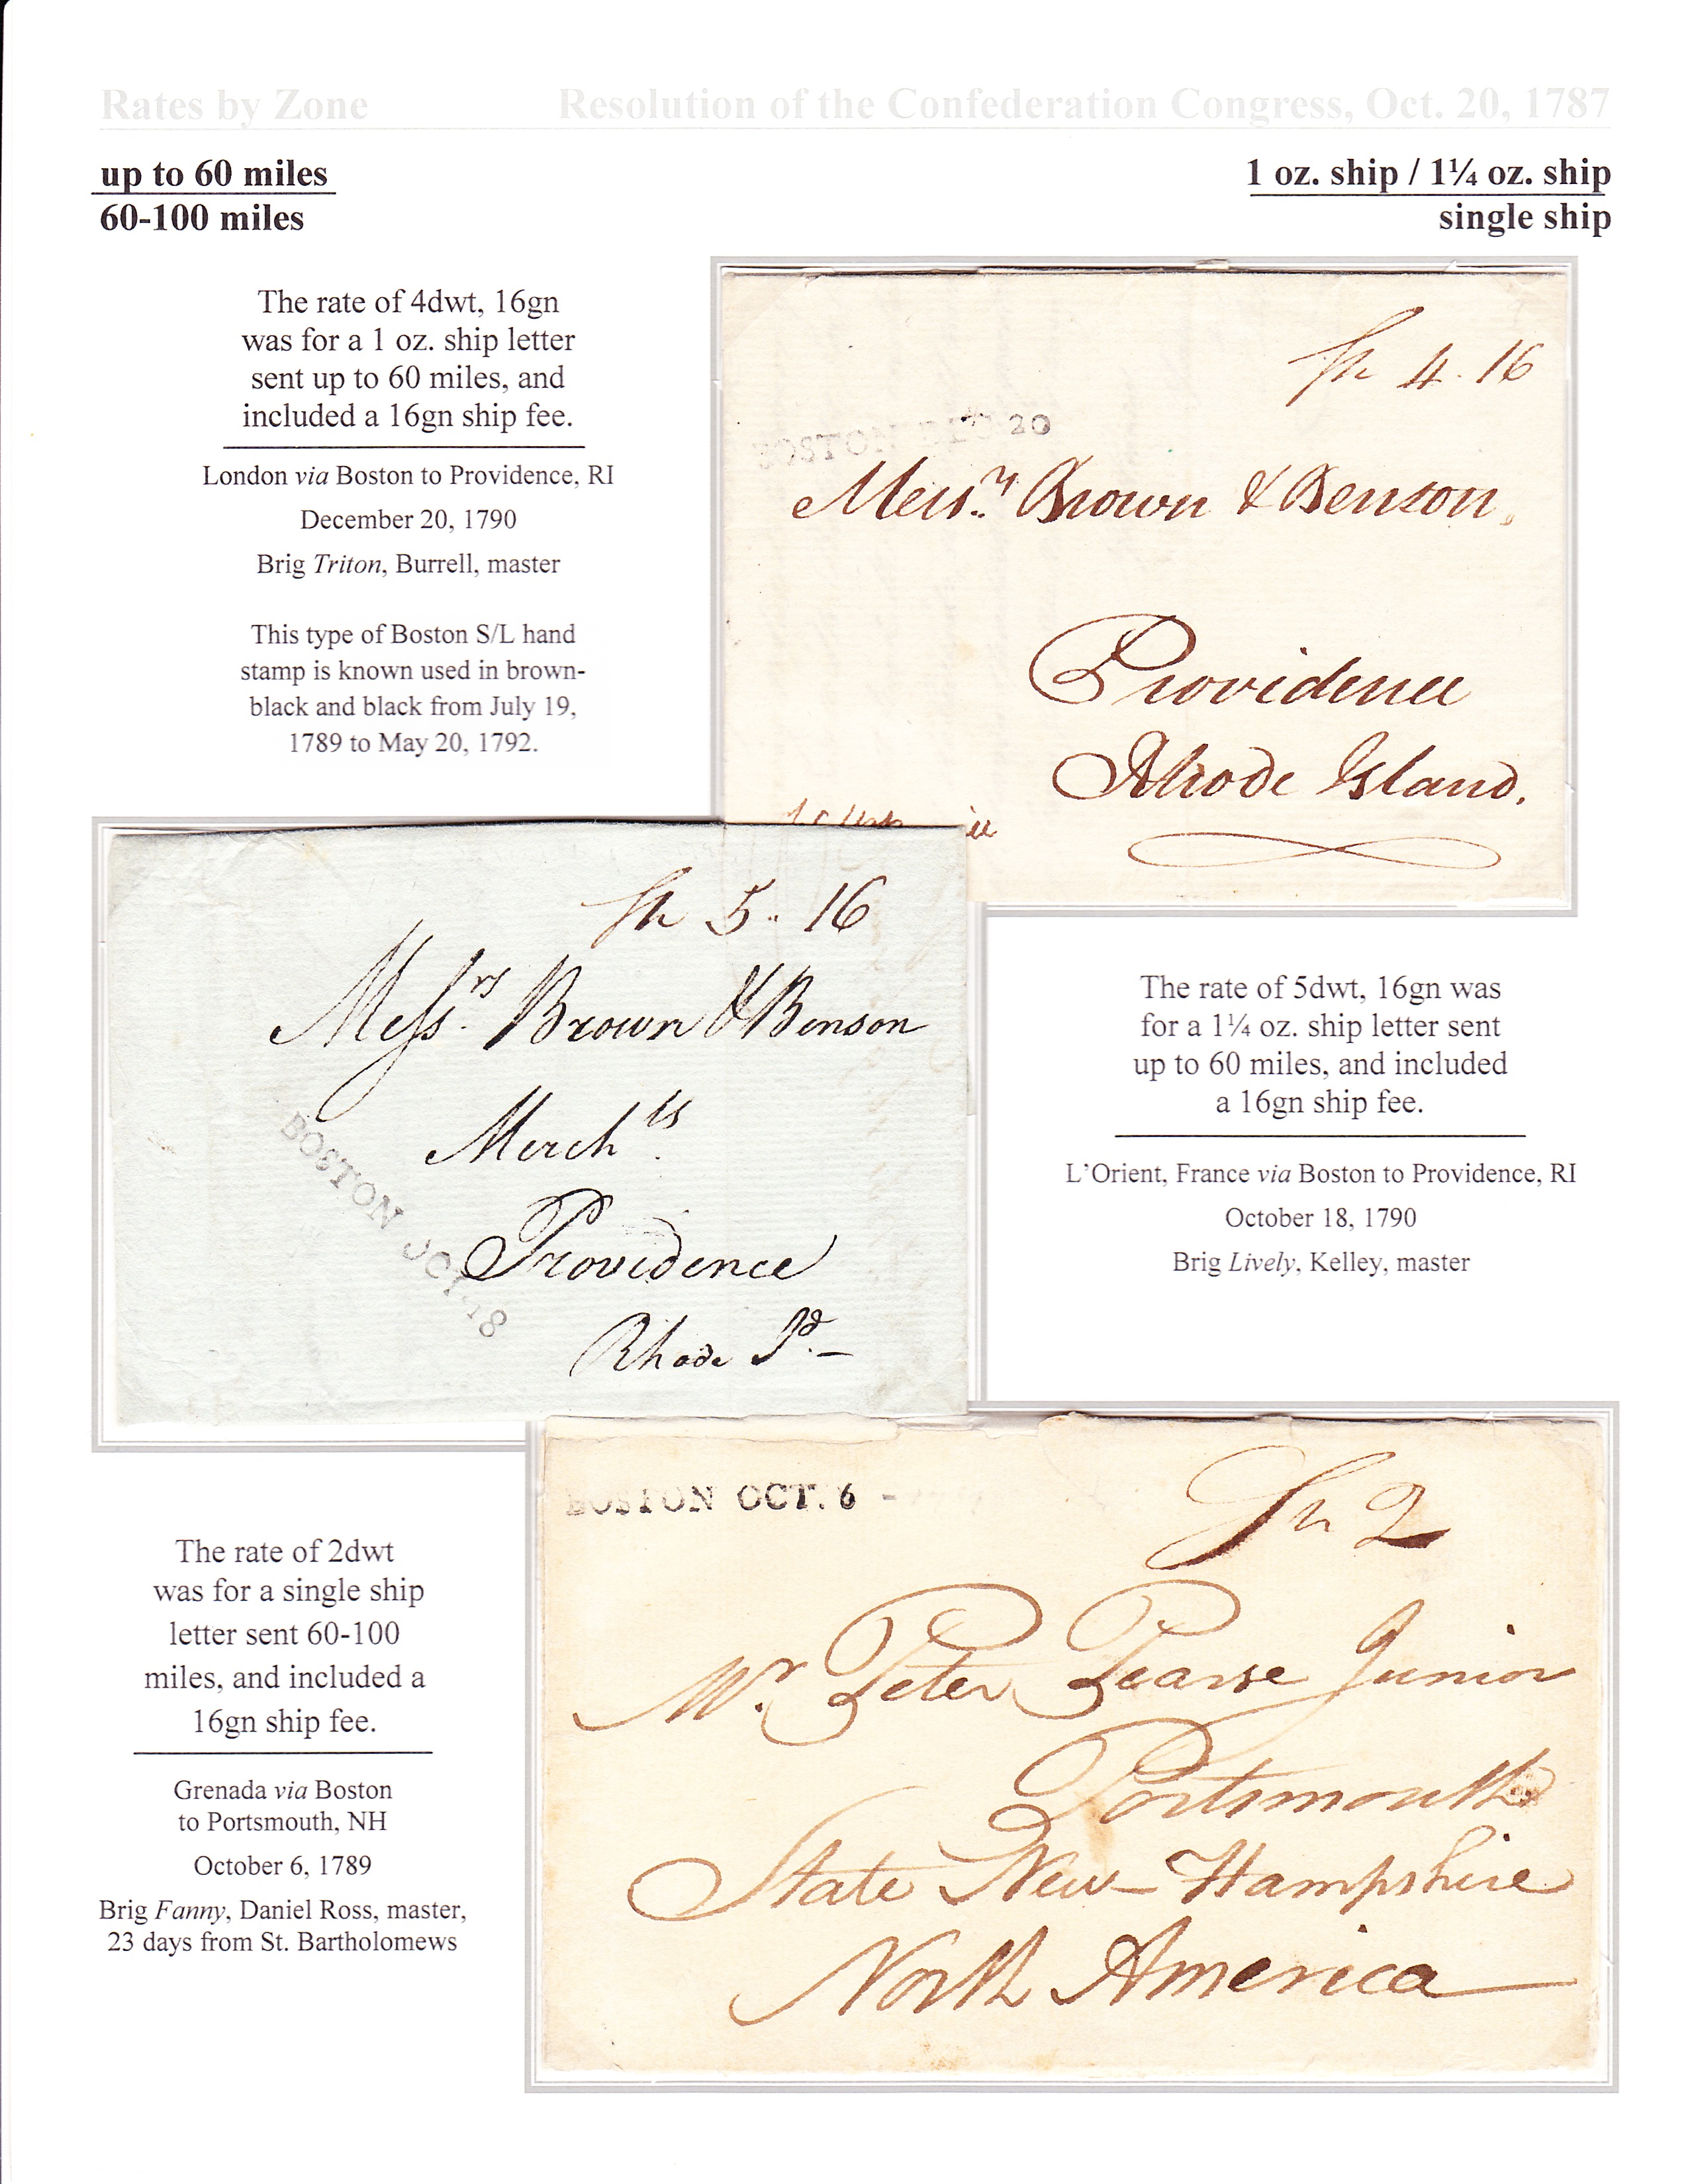 Rates by Zone Resolution of the Confederation Congress, Oct. 20, 1787
up to 60 miles
60-100 miles
1 oz. ship / 1¼ oz. ship
single ship
The rate of 4dwt, 16gn
was for a 1 oz. ship letter
sent up to 60 miles, and
included a 16gn ship fee.
London via Boston to Providence, RI
December 20, 1790
Brig Triton, Burrell, master
This type of Boston S/L hand
stamp is known used in brown-
black and black from July 19,
1789 to May 20, 1792.
Sh 4. 16
BOSTON DEC 20
Messrs. Brown & Benson,
Providence
Rhode Island.
Sh 5. 16
Messrs. Brown & Benson
Merchts.
BOSTON OCT. 18
Providence
Rhode Id. –
The rate of 5dwt, 16gn was
for a 1¼ oz. ship letter sent
up to 60 miles, and included
a 16gn ship fee.
L'Orient, France via Boston to Providence, RI
October 18, 1790
Brig Lively, Kelley, master
BOSTON OCT. 6
Sh 2
Mr. Peter Pearse Junior
Portsmouth
State New-Hampshire
North America
The rate of 2dwt
was for a single ship
letter sent 60-100
miles, and included a
16gn ship fee.
Grenada via Boston
to Portsmouth, NH
October 6, 1789
Brig Fanny, Daniel Ross, master,
23 days from St. Bartholomews